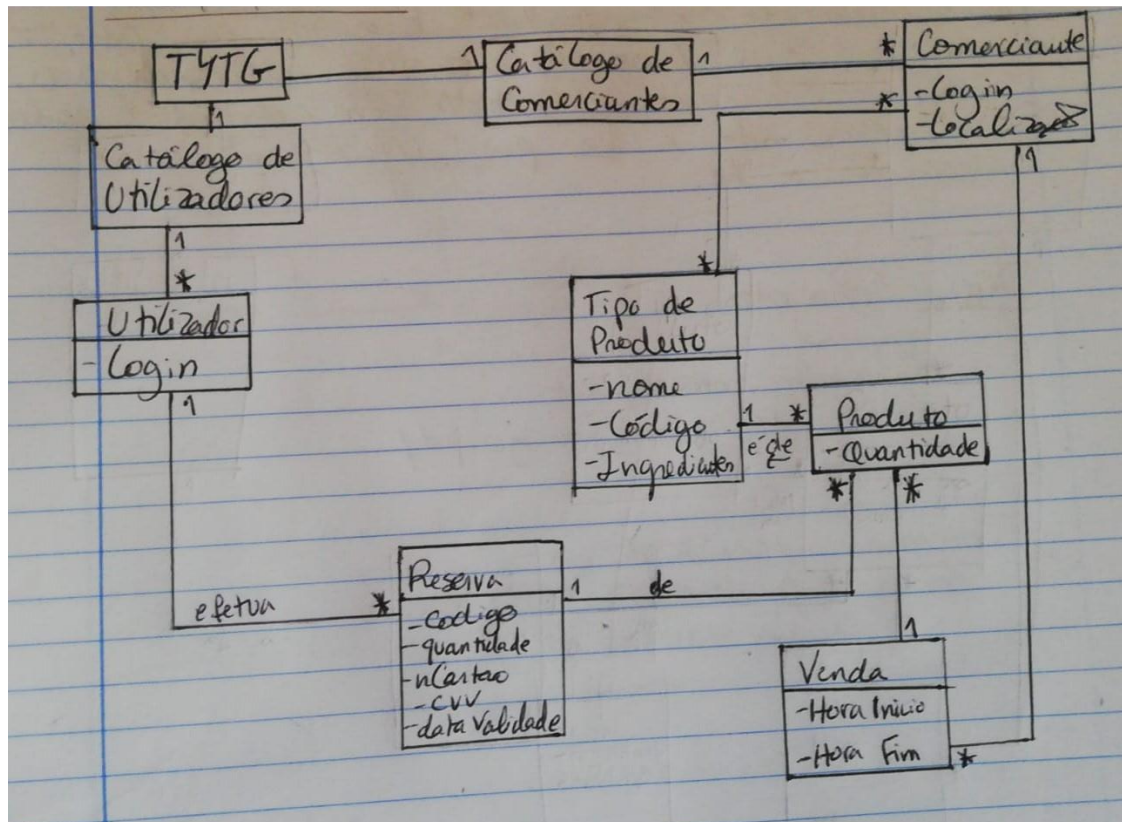 TYTG
1
Catálogo de
Comerciantes
1
*
Comerciante
-Login
-Localização
*
1
1
Catálogo de
Utilizadores
1
*
Utilizador
-Login
1
*
Tipo de
Produto
-nome
-Código
-Ingredientes
1
*
é de
Produto
-Quantidade
*
*
efetua
*
Reserva
-codigo
-quantidade
-nCartao
-CVV
-data Validade
1
de
1
Venda
-Hora Inicio
-Hora Fim
*